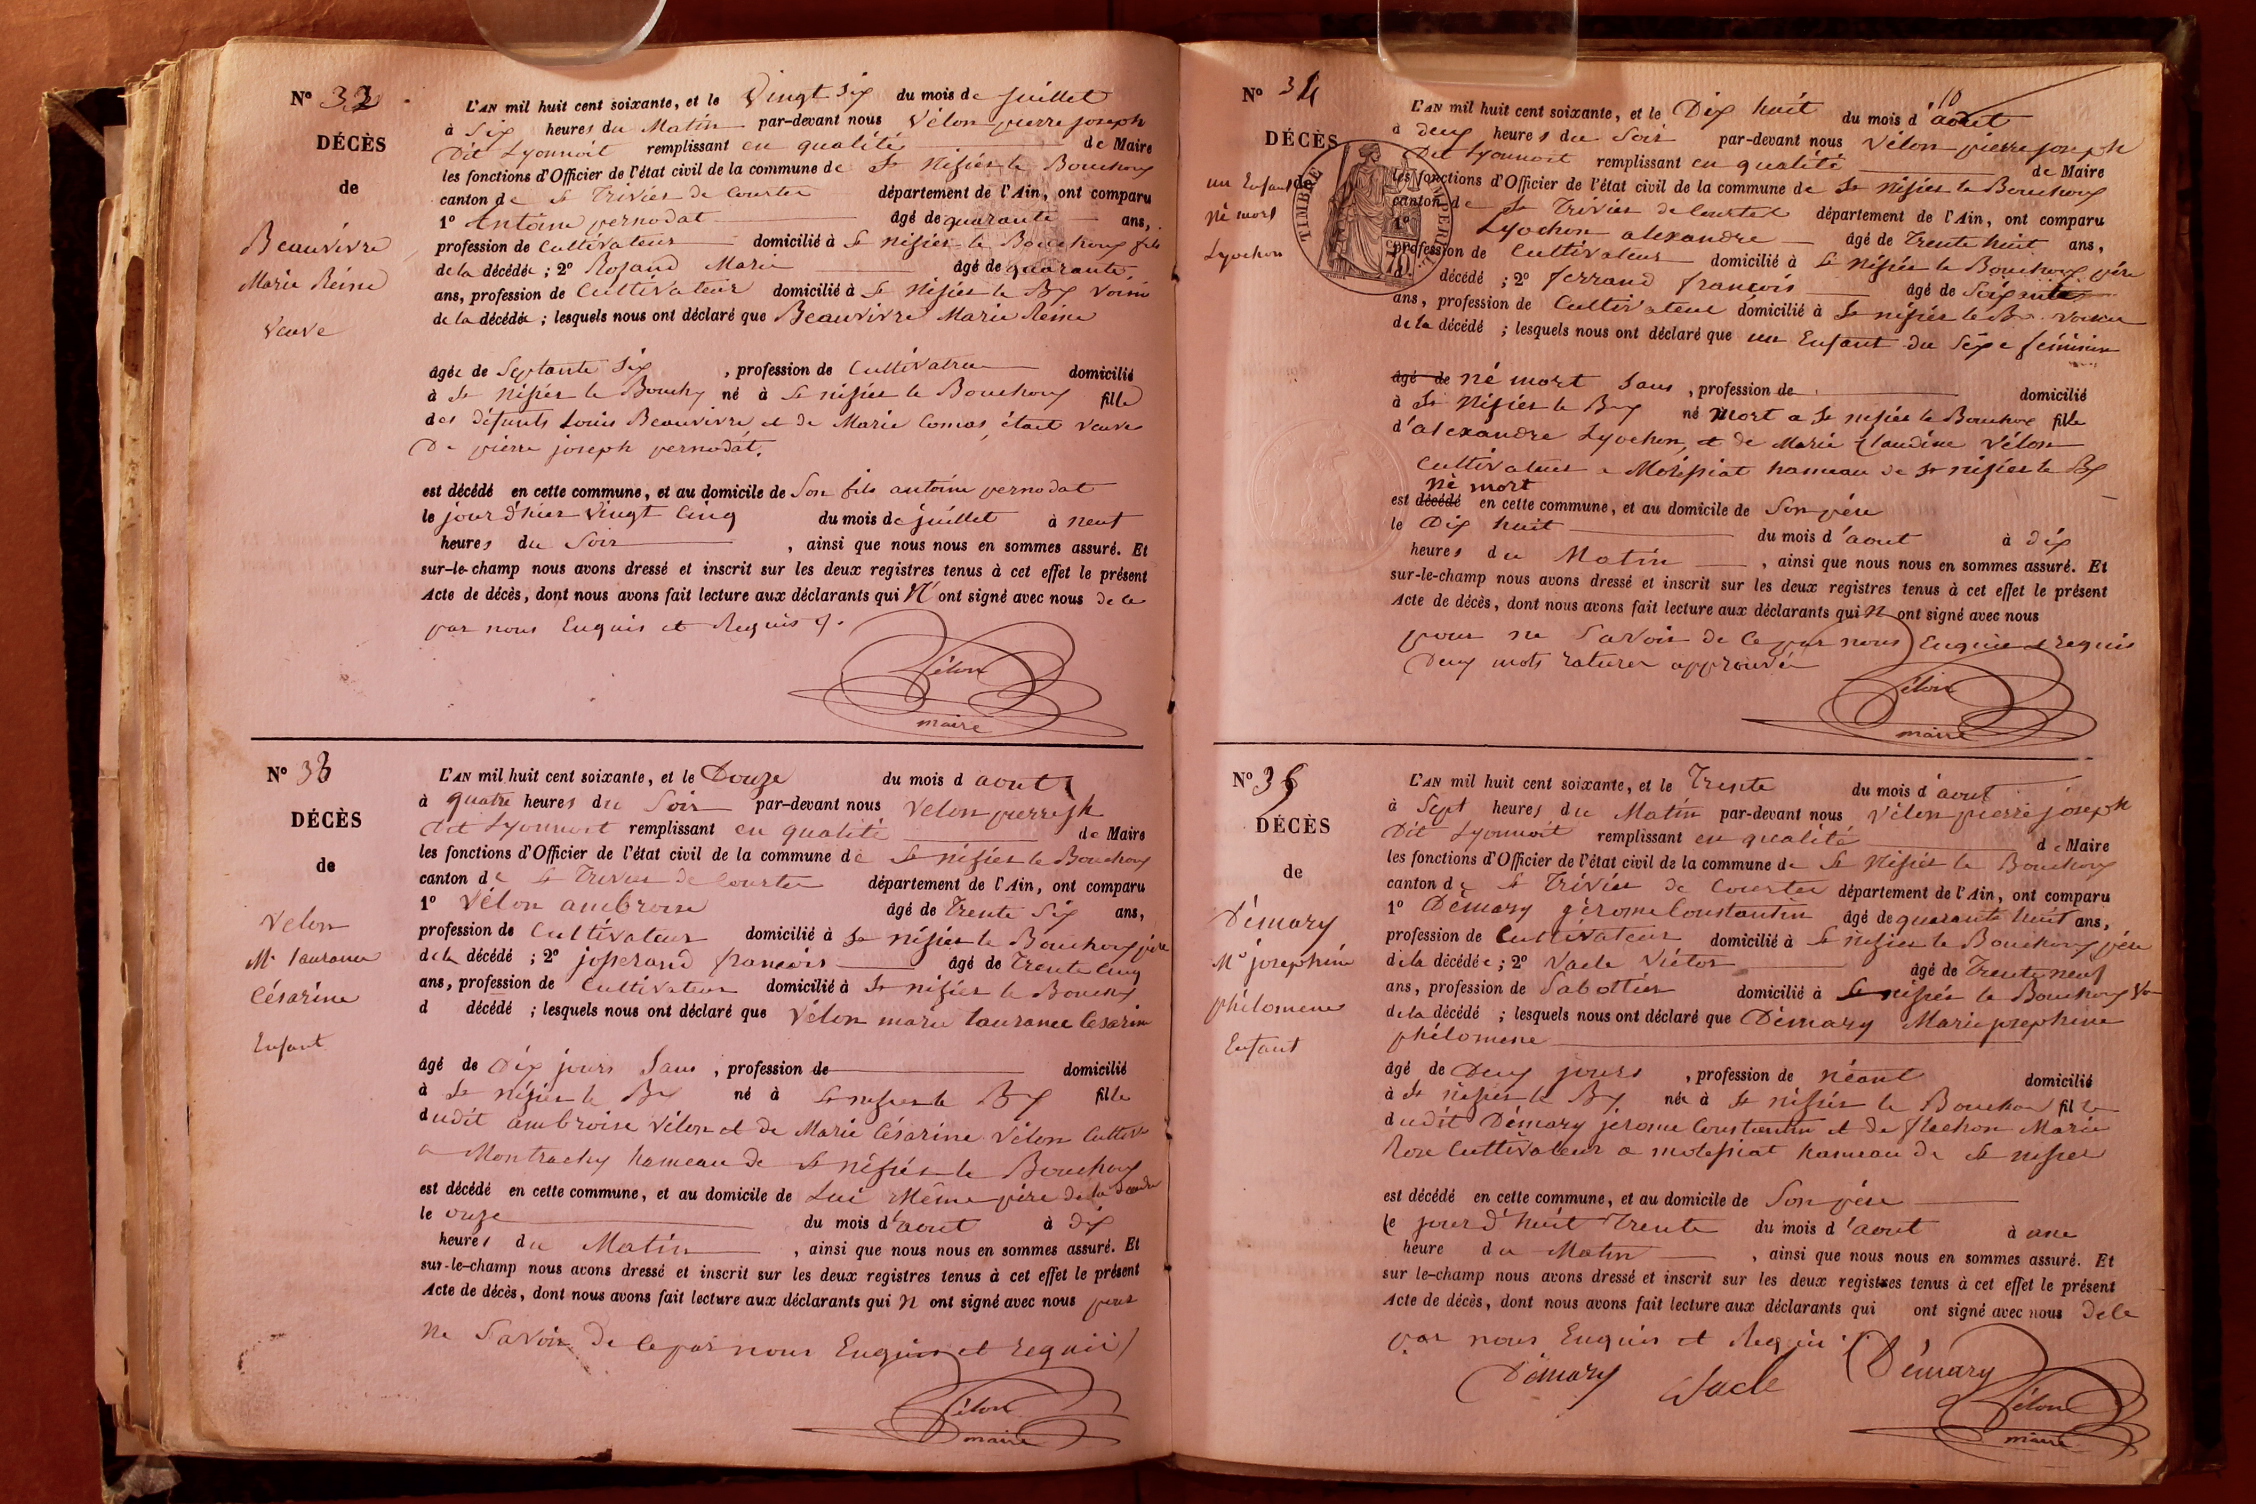 N° 32
DÉCÈS
de
Beauvivre
Marie Reine
Veuve
L'AN mil huit cent soixante, et le Vingt Six du mois de Juillet
à Six heures du Matin par-devant nous Vélon pierre joseph
Dit Lyonnoit remplissant en qualité de Maire
les fonctions d'Officier de l'état civil de la commune de St Nizier le Bouchoux
canton de St Trivier de Courtes département de l'Ain, ont comparu
1° Antoine pernodat âgé de quarante ans,
profession de Cultivateur domicilié à St Nizier le Bouchoux fils
de la décédée ; 2° Rosand Marie âgé de quarante
ans, profession de Cultivateur domicilié à St Nizier le Bx voisin
de la décédée ; lesquels nous ont déclaré que Beauvivre Marie Reine
âgée de Septante Six , profession de Cultivatrice domicilié
à St Nizier le Bouchx né à St nizier le Bouchoux fille
des défunts Louis Beauvivre et de Marie Comas, était veuve
De pierre joseph pernodat.
est décédé en cette commune, et au domicile de Son fils antoine pernodat
le jour d'hier Vingt Cinq du mois de juillet à neuf
heures du Soir , ainsi que nous nous en sommes assuré. Et
sur-le-champ nous avons dressé et inscrit sur les deux registres tenus à cet effet le présent
Acte de décès, dont nous avons fait lecture aux déclarants qui N' ont signé avec nous de ce
par nous Enquis et Requis
Vélon
maire
N° 33
DÉCÈS
de
Velon
Me laurance
Césarine
Enfant
L'AN mil huit cent soixante, et le Douze du mois d aout
à quatre heures du Soir par-devant nous Velon pierre jh
Dit Lyonnoit remplissant en qualité de Maire
les fonctions d'Officier de l'état civil de la commune de St nizier le Bouchoux
canton de St Trivier de Courtes département de l'Ain, ont comparu
1° Vélon ambroise âgé de Trente Six ans,
profession de Cultivateur domicilié à St nizier le Bouchoux père
de la décédé ; 2° josserand françois âgé de Trente Cinq
ans, profession de Cultivateur domicilié à St nizier le Bouchx
d décédé ; lesquels nous ont déclaré que Vélon marie laurance Cesarine
âgé de Dix jours Sans , profession de domicilié
à St nizier le Bx né à St nizier le Bx fille
dudit ambroise Vélon et de Marie Césarine Vélon Cultiva
a Montrachy hameau de St nizier le Bouchoux
est décédé en cette commune, et au domicile de Lui Même père de la
le onze du mois d'aout à dix
heures du Matin , ainsi que nous nous en sommes assuré. Et
sur-le-champ nous avons dressé et inscrit sur les deux registres tenus à cet effet le présent
Acte de décès, dont nous avons fait lecture aux déclarants qui N ont signé avec nous pour
ne Savoir de ce par nous Enquis et requis
Vélon
maire
N° 34
DÉCÈS
de
un Enfant
né mort
Lyochon
TIMBRE IMPERIAL
L'AN mil huit cent soixante, et le Dix huit du mois d'aout
à deux heures du Soir par-devant nous Vélon pierre joseph
Dit Lyonnoit remplissant en qualité de Maire
les fonctions d'Officier de l'état civil de la commune de St nizier le Bouchoux
canton de St Trivier de Courtes département de l'Ain, ont comparu
1° Lyochon alexandre âgé de Trente huit ans,
profession de Cultivateur domicilié à St Nizier le Bouchoux père
décédé ; 2° ferrand françois âgé de Soixante
ans, profession de Cultivateur domicilié à St nizier le Bx voisin
de la décédé ; lesquels nous ont déclaré que un Enfant du Sexe féminin
âgé de né mort Sans , profession de domicilié
à St Nizier le Bx né mort a St nizier le Bouchoux fille
d'alexandre Lyochon, et de Marie Claudine Vélon
Cultivateurs a Molissiat hameau de St nizier le Bx
né mort
est décédé en cette commune, et au domicile de Son père
le Dix huit du mois d'aout à dix
heures du Matin , ainsi que nous nous en sommes assuré. Et
sur-le-champ nous avons dressé et inscrit sur les deux registres tenus à cet effet le présent
Acte de décès, dont nous avons fait lecture aux déclarants qui N ont signé avec nous
pour ne Savoir de ce par nous Enquis et requis
Deux mots raturer approuvés
Vélon
maire
N° 35
DÉCÈS
de
Démary
Me josephine
philomene
Enfant
L'AN mil huit cent soixante, et le Trente du mois d'aout
à Sept heures du Matin par-devant nous Vélon pierre joseph
Dit Lyonnoit remplissant en qualité de Maire
les fonctions d'Officier de l'état civil de la commune de St Nizier le Bouchoux
canton de St Trivier de Courtes département de l'Ain, ont comparu
1° Démary gérome Constantin âgé de quarante huit ans,
profession de Cultivateur domicilié à St nizier le Bouchoux père
de la décédée ; 2° Vacle Victor âgé de Trente neuf
ans, profession de Sabottier domicilié à St nizier le Bouchoux Vo
de la décédé ; lesquels nous ont déclaré que Démary Marie josephine
philomene
âgé de Deux jours , profession de néant domicilié
à St nizier le Bx née à St nizier le Bouchou fille
dudit Démary jerome Constantin et de flechon Marie
Rose Cultivateur a molissiat hameau de St nizier
est décédé en cette commune, et au domicile de Son père
le jour d'huit Trente du mois d'aout à une
heure du Matin , ainsi que nous nous en sommes assuré. Et
sur le-champ nous avons dressé et inscrit sur les deux registres tenus à cet effet le présent
Acte de décès, dont nous avons fait lecture aux déclarants qui ont signé avec nous de ce
par nous Enquis et Requis
Démary Vacle Démary
Vélon
maire